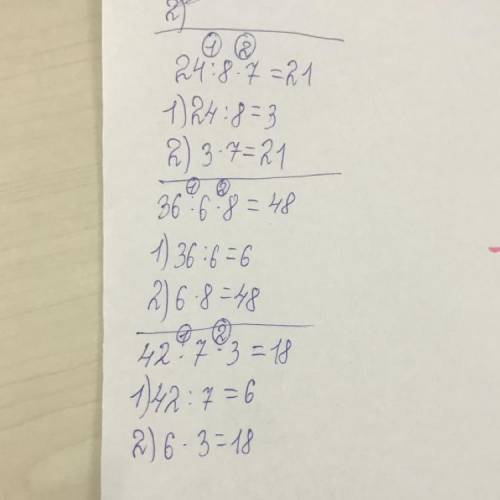 2)
① ②
24:8·7=21
1) 24:8=3
2) 3·7=21
① ②
36:6·8=48
1) 36:6=6
2) 6·8=48
① ②
42:7·3=18
1) 42:7=6
2) 6·3=18